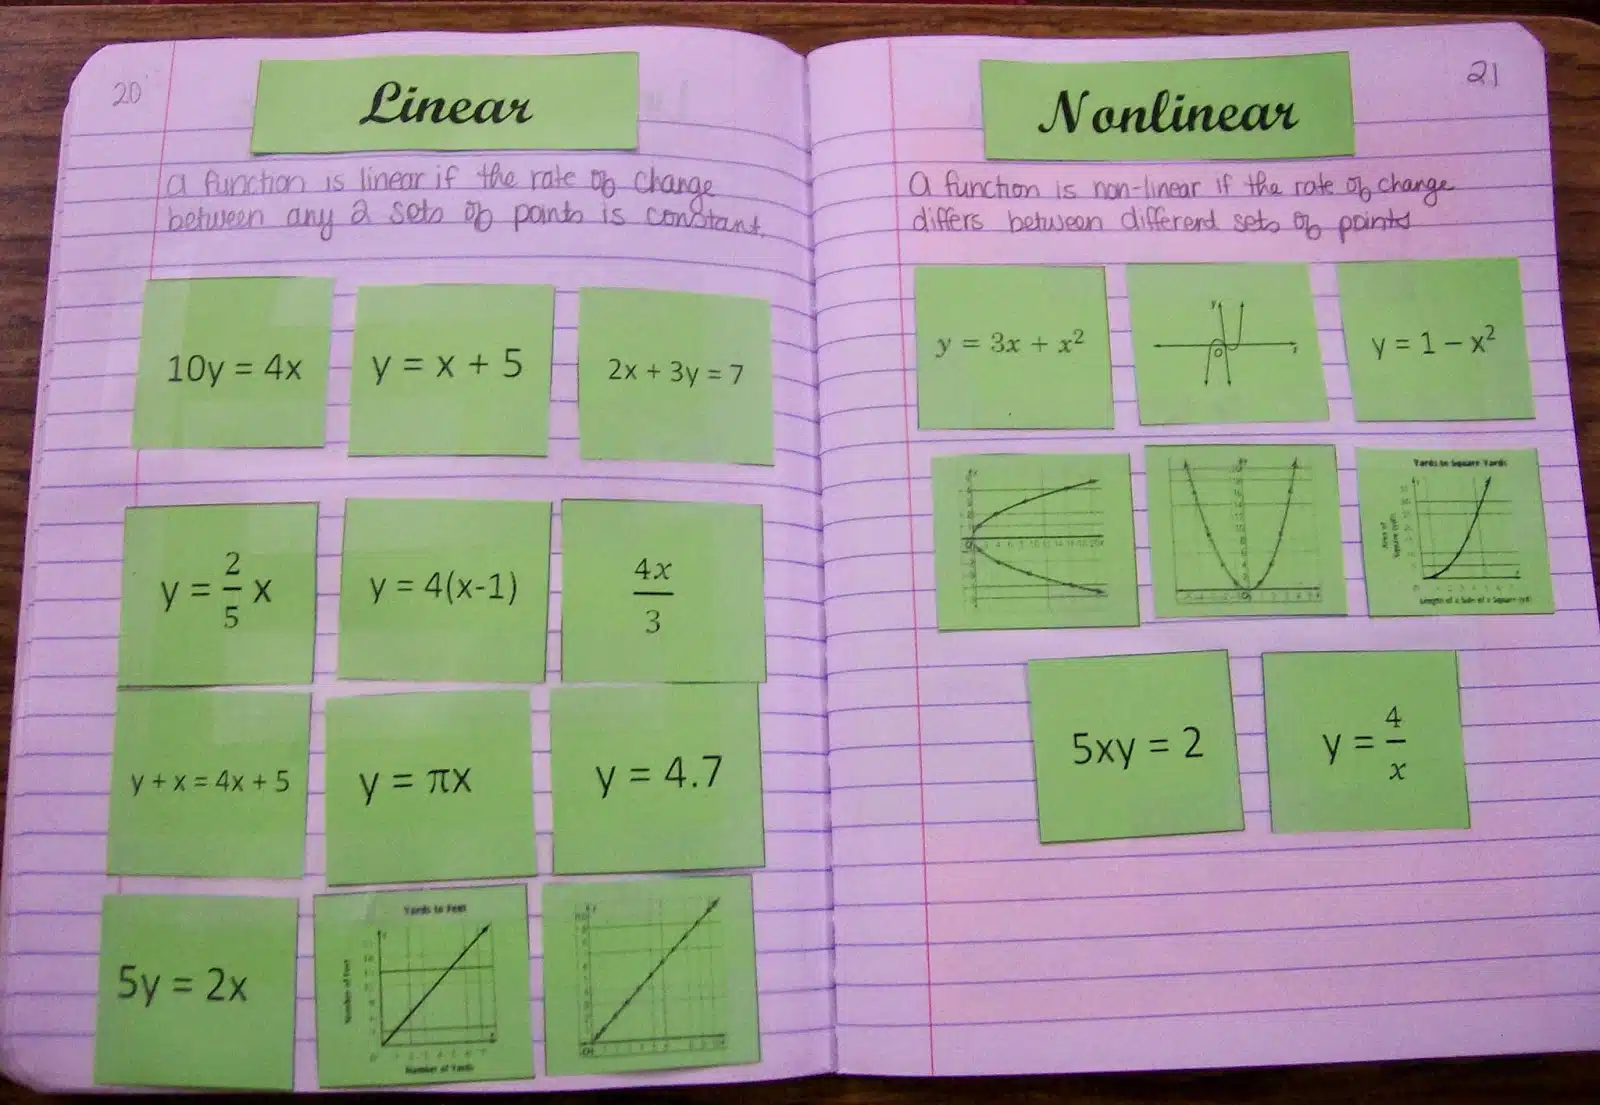 20
Linear
a function is linear if the rate of change
between any 2 sets of points is constant.
10y = 4x
y = x + 5
2x + 3y = 7
y = 2/5 x
y = 4(x-1)
4x/3
y + x = 4x + 5
y = πx
y = 4.7
5y = 2x
Yards to Feet
Number of Feet
Number of Yards
21
Nonlinear
a function is non-linear if the rate of change
differs between different sets of points
y = 3x + x²
y
x
O
y = 1 – x²
Yards to Square Yards
Area of
Square (yd²)
Length of a Side of a Square (yd)
5xy = 2
y = 4/x